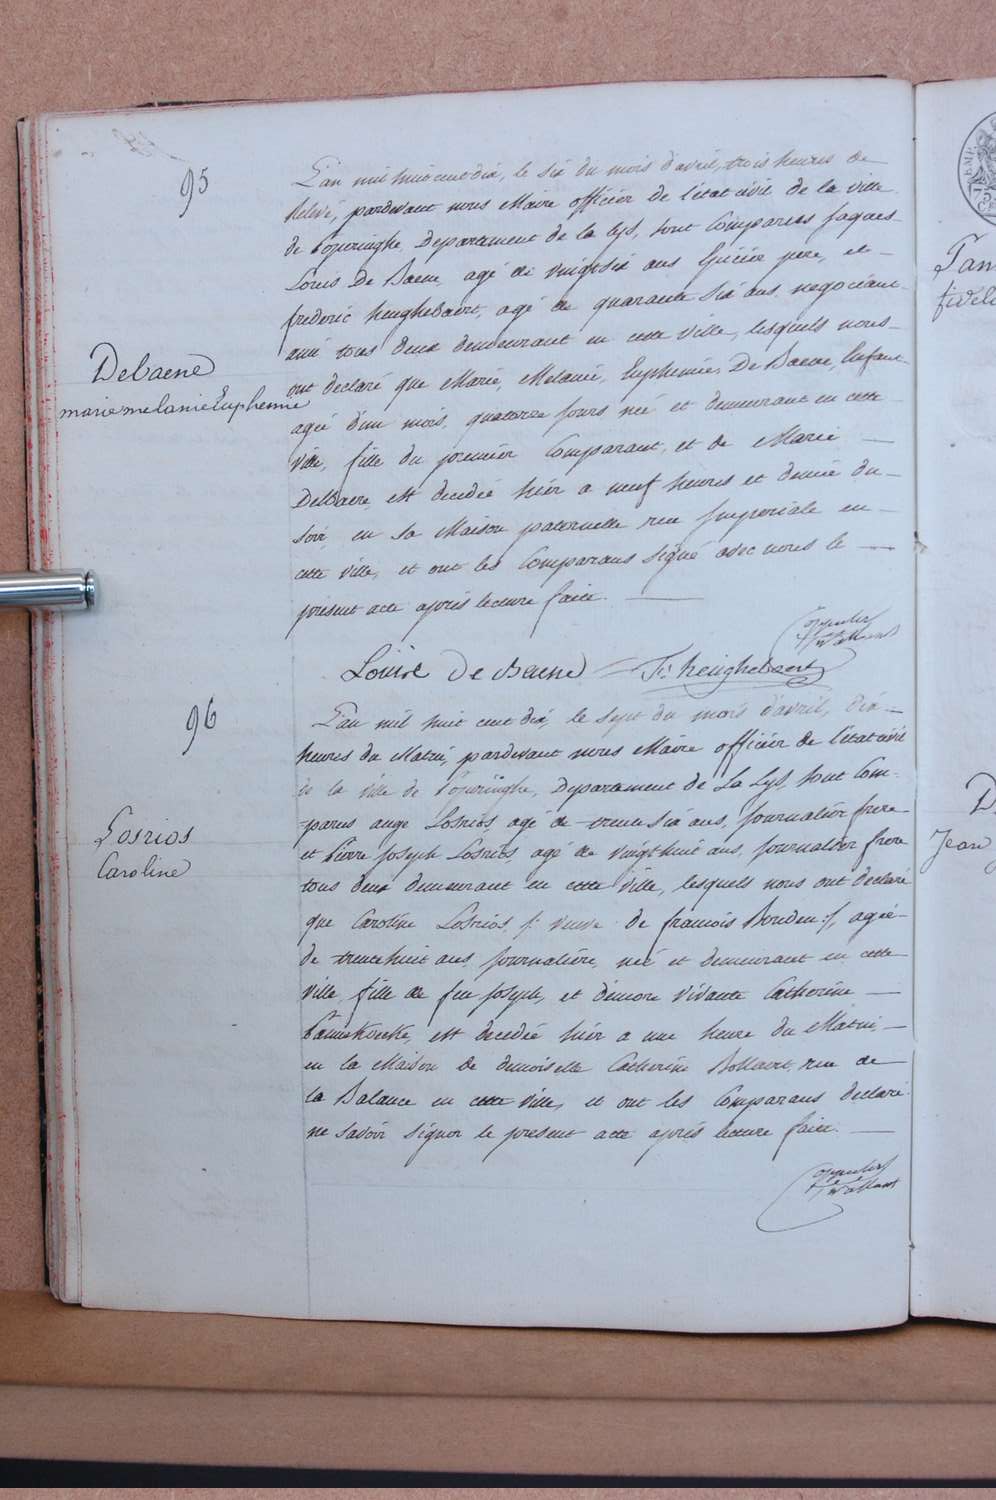 95
L'an mil huit cent dix, le six du mois d'avril, trois heures de
Relevé, pardevant nous Maire officier de l'état civil de la ville
de Poperinghe, Departement de la Lys, sont Comparus Jaques
Louis De Baene, agé de vingt six ans Epicier pere, et
frederic heughebaert, agé de quarante six ans, negociant
ami tous deux demeurant en cette ville, lesquels nous
ont declaré que Marie, Melanie, Euphemie De Baene, Enfant
agée d'un mois, quatorze jours née et demeurant en cette
Debaene
marie melanie Euphemie
ville, fille du premier Comparant, et de Marie
Debaere, est decedée hier a neuf heures et demie du
soir, en sa Maison paternelle rue Imperiale en
cette ville, et ont les Comparans signé avec nous le
présent acte après lecture faite.
Louise De Baene F: heughebaert
96
L'an mil huit cent dix, le sept du mois d'avril, dix
heures du Matin, pardevant nous Maire officier de l'état civil
de la ville de Poperinghe, Departement de La Lys, sont Com-
-parus ange Losrios, agé de trente six ans, Journalier frere
et Pierre Joseph Losrios, agé de vingt huit ans, Journalier frere
tous deux demeurant en cette ville, lesquels nous ont declaré
que Caroline Losrios, /: veuve de francois Bouden :/, agée
de trente huit ans, journaliére, née et demeurant en cette
ville, fille de feu Joseph, et d'encore vivante Catherine
est decedée hier a une heure du Matin,
en la Maison de demoiselle Catherine Bollaert, rue de
la Balance en cette ville, et ont les Comparans declaré
ne savoir signer le present acte après lecture faite.
Losrios
Caroline
Jean